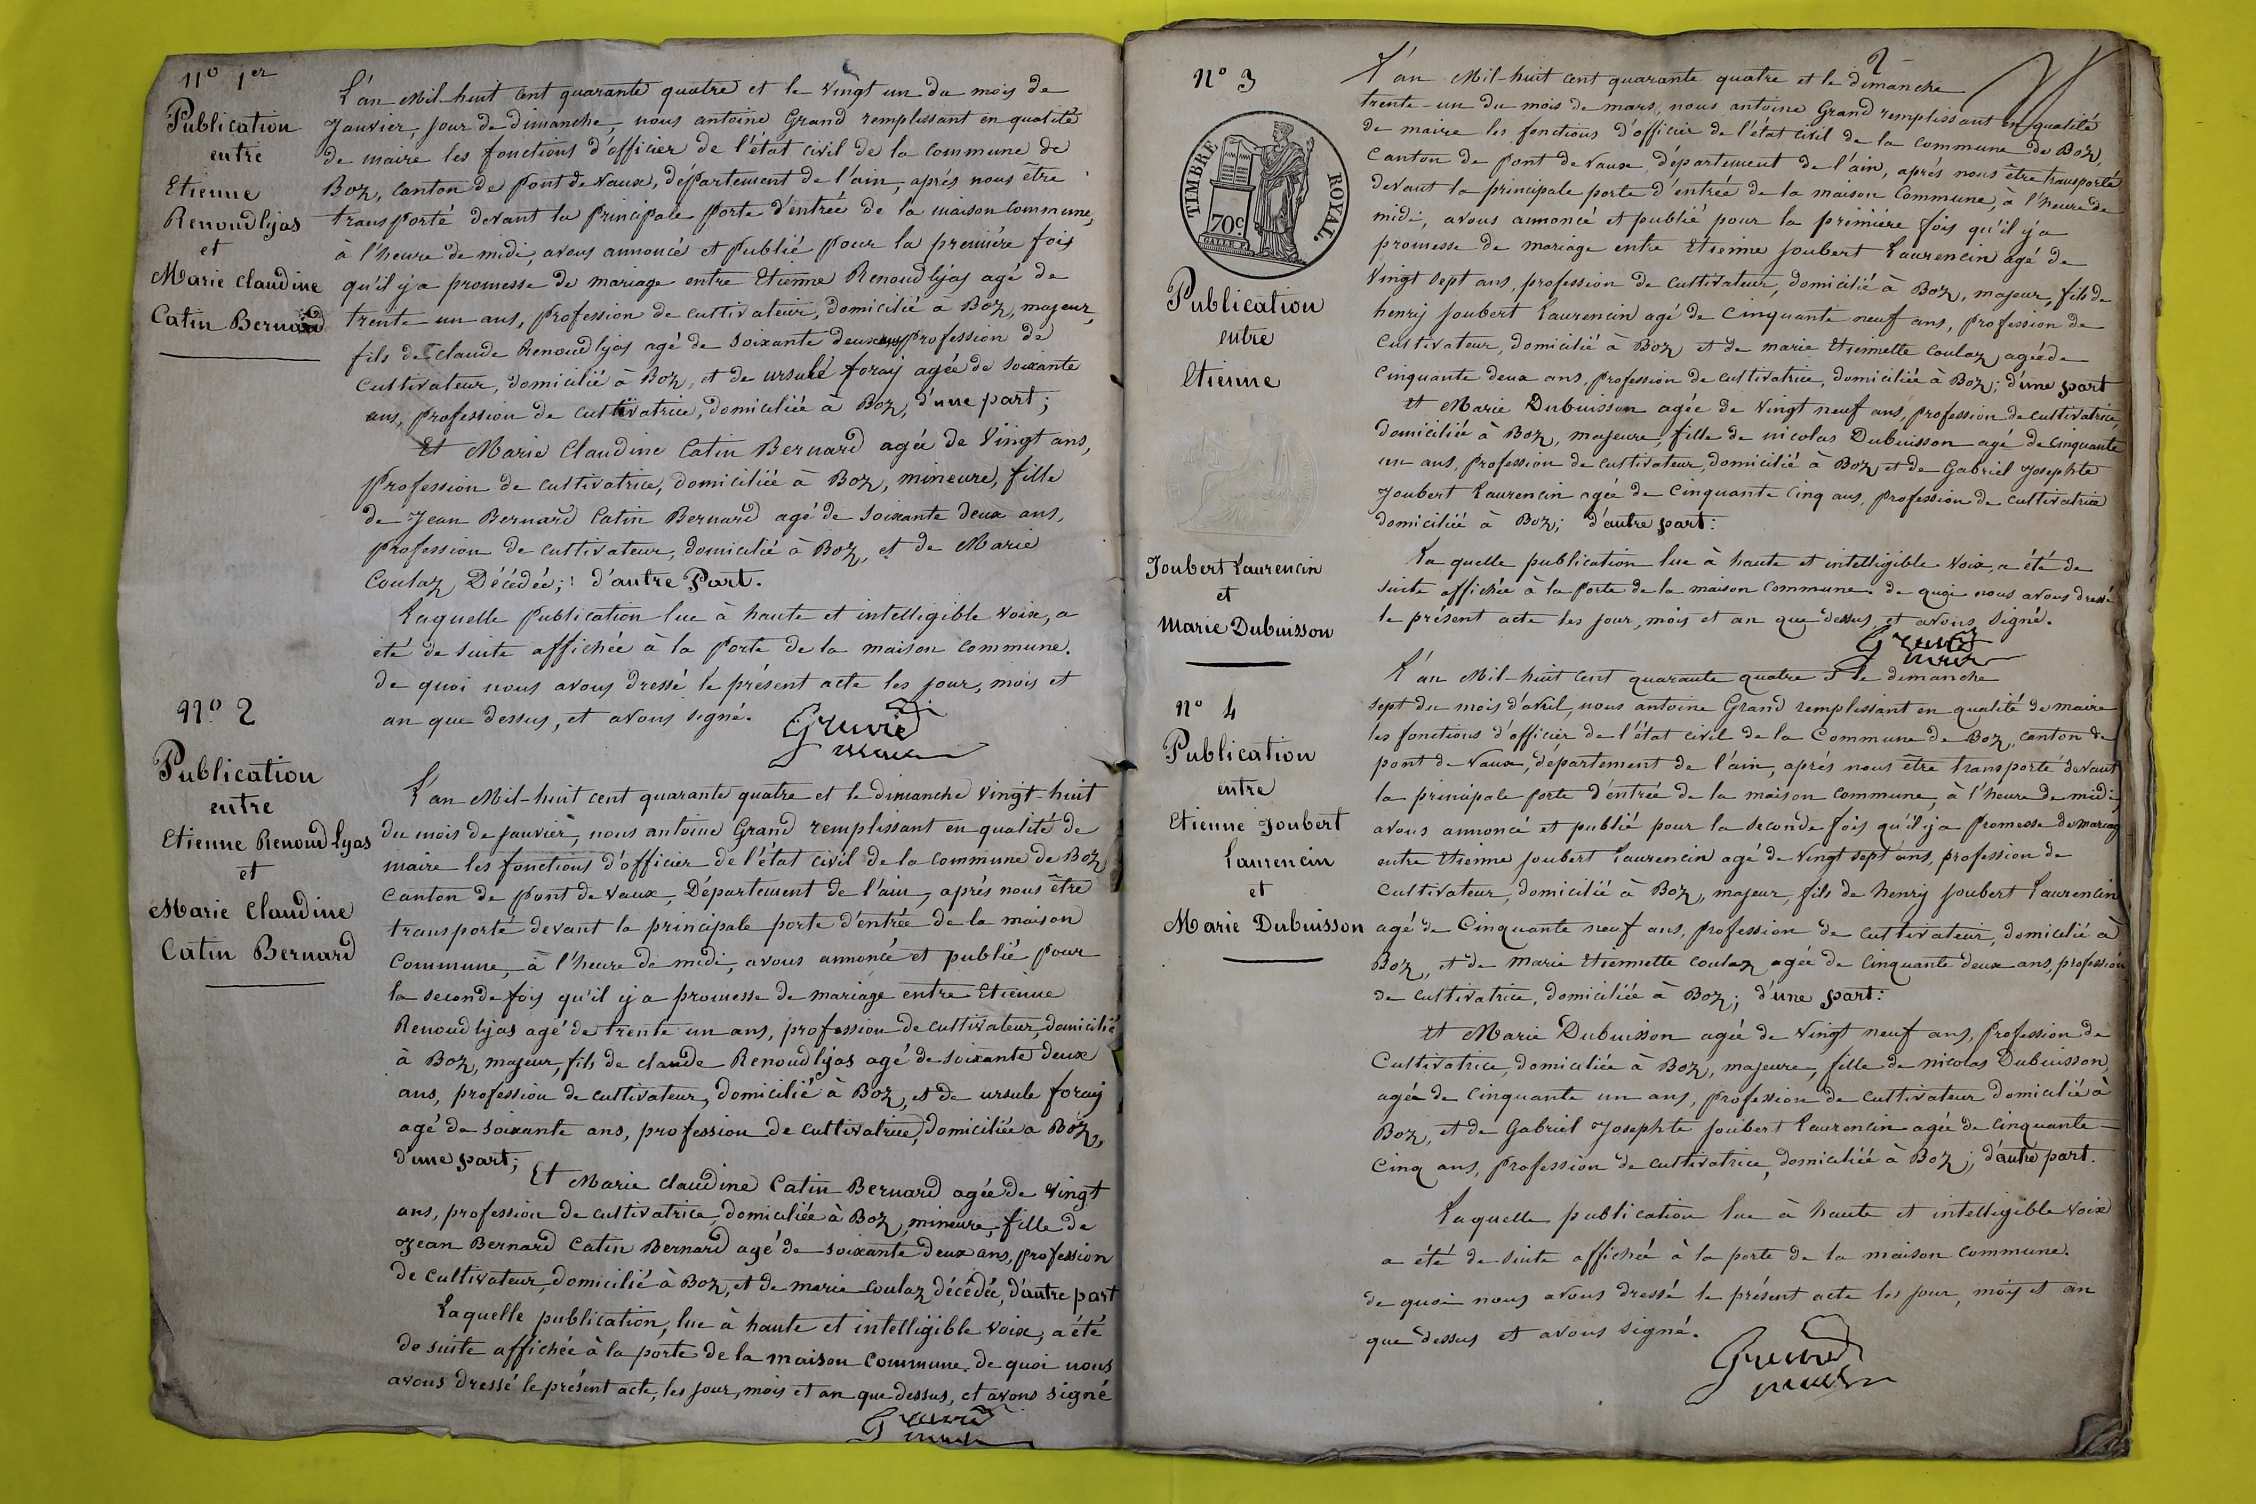 N° 1er
Publication
entre
Etienne
Renoudlyas
et
Marie Claudine
Catin Bernard
L'an Mil-huit Cent quarante quatre et le Vingt un du mois de
Janvier, jour de dimanche, nous antoine Grand remplissant en qualité
de maire les fonctions d'officier de l'état civil de la Commune de
Boz, canton de pont de Vaux, département de l'ain, après nous être
transporté devant la principale porte d'entrée de la maison commune,
à l'heure de midi, avons annoncé et publié pour la première fois
qu'il y'a promesse de mariage entre Etienne Renoudlyas agé de
trente un ans, profession de cultivateur, domicilié à Boz, majeur,
fils de Claude Renoudlyas agé de soixante deux ans profession de
Cultivateur, domicilié à Boz, et de ursule foray agée de soixante
ans, profession de cultivatrice, domiciliée à Boz, d'une part;
Et Marie Claudine Catin Bernard agée de Vingt ans,
profession de cultivatrice, domiciliée à Boz, mineure, fille
de Jean Bernard Catin Bernard agé de soixante deux ans,
profession de cultivateur, domicilié à Boz, et de Marie
Coulaz Décédée; d'autre Part.
Laquelle publication lue à haute et intelligible voix, a
été de suite affichée à la porte de la maison commune.
de quoi nous avons dressé le présent acte les jour, mois et
an que dessus, et avons signé.
Grand
maire
N° 2
Publication
entre
Etienne Renoudlyas
et
Marie Claudine
Catin Bernard
L'an Mil-huit cent quarante quatre et le dimanche Vingt-huit
du mois de janvier, nous antoine Grand remplissant en qualité de
maire les fonctions d'officier de l'état civil de la commune de Boz
Canton de pont de Vaux, Département de l'ain, après nous être
transporté devant la principale porte d'entrée de la maison
Commune, à l'heure de midi, avons annoncé et publié pour
la seconde fois qu'il y a promesse de mariage entre Etienne
Renoudlyas agé de trente un ans, profession de cultivateur, domicilié
à Boz, majeur, fils de claude Renoudlyas agé de soixante deux
ans, profession de cultivateur, domicilié à Boz, et de ursule foray
agé de soixante ans, profession de cultivatrice, domiciliée a Boz,
d'une part;
Et Marie claudine Catin Bernard agée de vingt
ans, profession de cultivatrice, domiciliée à Boz, mineure, fille de
Jean Bernard Catin Bernard agé de soixante deux ans, profession
de cultivateur, domicilié à Boz, et de marie coulaz décédée, d'autre part
Laquelle publication, lue à haute et intelligible voix, a été
de suite affichée à la porte de la maison commune. de quoi nous
avons dressé le présent acte, les jour, mois et an que dessus, et avons signé
Grand
maire
2
N° 3
TIMBRE ROYAL.
70c
Publication
entre
Etienne
Joubert Laurencin
et
Marie Dubuisson
L'an Mil-huit Cent quarante quatre et le dimanche
trente-un du mois de mars, nous antoine Grand remplissant en qualité
de maire les fonctions d'officier de l'état civil de la commune de Boz,
Canton de pont de vaux, département de l'ain, après nous être transporté
devant la principale porte d'entrée de la maison Commune, à l'heure de
midi, avons annoncé et publié pour la première fois qu'il y a
promesse de mariage entre Etienne Joubert Laurencin agé de
Vingt sept ans, profession de Cultivateur, domicilié à Boz, majeur, fils de
henry Joubert Laurencin agé de Cinquante neuf ans, profession de
Cultivateur, domicilié à Boz et de marie Etiennette Coulaz agée de
Cinquante deux ans, profession de cultivatrice, domiciliée à Boz; d'une part
et Marie Dubuisson agée de Vingt neuf ans, profession de cultivatrice,
domiciliée à Boz, majeure, fille de nicolas Dubuisson agé de Cinquante
un ans, profession de cultivateur, domicilié à Boz et de Gabriel Josephte
Joubert Laurencin agée de Cinquante Cinq ans, profession de cultivatrice
domiciliée à Boz; d'autre part:
Laquelle publication lue à haute et intelligible Voix, a été de
suite affichée à la porte de la maison Commune. de quoi nous avons dressé
le présent acte les jour, mois et an que dessus, et avons signé.
Grand
maire
N° 4
Publication
entre
Etienne Joubert
Laurencin
et
Marie Dubuisson
L'an Mil-huit Cent quarante quatre et le dimanche
sept du mois d'avril, nous antoine Grand remplissant en qualité de maire
les fonctions d'officier de l'état civil de la Commune de Boz, canton de
pont de Vaux, département de l'ain, après nous être transporté devant
la principale porte d'entrée de la maison commune, à l'heure de midi,
avons annoncé et publié pour la seconde fois qu'il y a promesse de mariage
entre Etienne Joubert Laurencin agé de Vingt sept ans, profession de
Cultivateur, domicilié à Boz, majeur, fils de henry Joubert Laurencin
agé de Cinquante neuf ans, profession de cultivateur, domicilié à
Boz, et de Marie Etiennette coulaz agée de Cinquante deux ans, profession
de cultivatrice, domiciliée à Boz; d'une part:
et Marie Dubuisson agée de Vingt neuf ans, profession de
Cultivatrice, domiciliée à Boz, majeure, fille de nicolas Dubuisson
agée de Cinquante un ans, profession de cultivateur domicilié à
Boz, et de Gabriel Josephte Joubert Laurencin agée de Cinquante
Cinq ans, profession de cultivatrice, domiciliée à Boz; d'autre part.
Laquelle publication lue à haute et intelligible Voix
a été de suite affichée à la porte de la maison commune.
de quoi nous avons dressé le présent acte les jour, mois et an
que dessus et avons signé.
Grand
maire